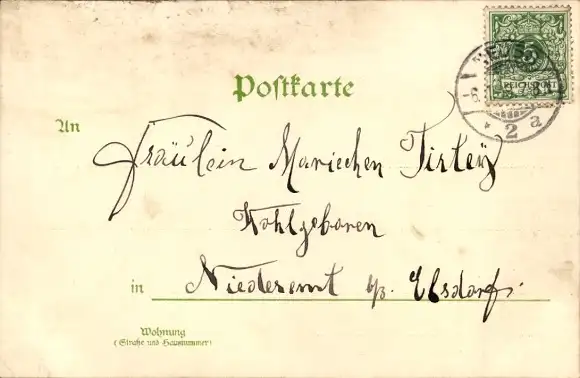 Postkarte
5
REICHSPOST
2 a
An
Fräulein Mariechen Tirley
Wohlgeboren
in Niederemt b/B. Elsdorf.
Wohnung
(Straße und Hausnummer)